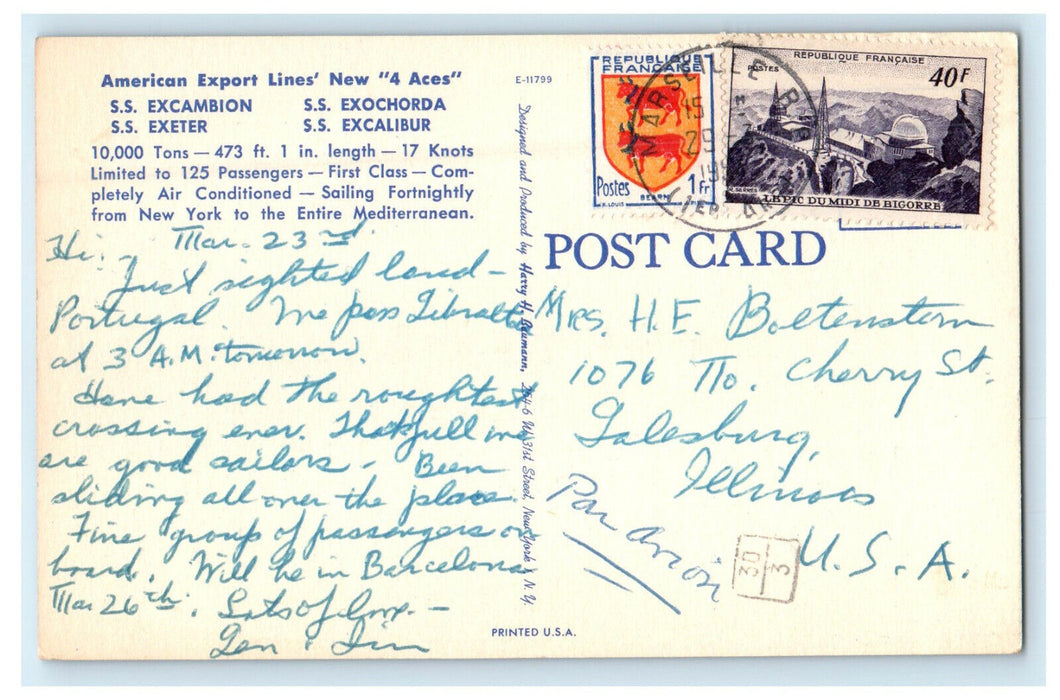 American Export Lines' New "4 Aces"
S.S. EXCAMBION S.S. EXOCHORDA
S.S. EXETER S.S. EXCALIBUR
10,000 Tons — 473 ft. 1 in. length — 17 Knots
Limited to 125 Passengers — First Class — Com-
pletely Air Conditioned — Sailing Fortnightly
from New York to the Entire Mediterranean.
Mar. 23rd.
Hi;-
Just sighted land -
Portugal. We pass Gibralta
at 3 A.M. tomorrow.
Have had the roughtest
crossing ever. Thankfull we
are good sailors. Been
sliding all over the place.
Fine group of passengers on
board. Will be in Barcelona
Mar 26th. Lots of love. -
Gen & Jim
E-11799
Designed and Produced by Harry H. Baumann, 254-6 W. 31st Street, New York 1, N. Y.
PRINTED U.S.A.
REPUBLIQUE
FRANÇAISE
Postes 1Fr
R. LOUIS BEARN
REPUBLIQUE FRANÇAISE
POSTES 40F
LE PIC DU MIDI DE BIGORRE
MARSEILLE
15
29
POST CARD
Mrs. H.E. Boltenstern
1076 No. Cherry St.
Galesburg,
Illinois
U.S.A.
Par avion
30
3